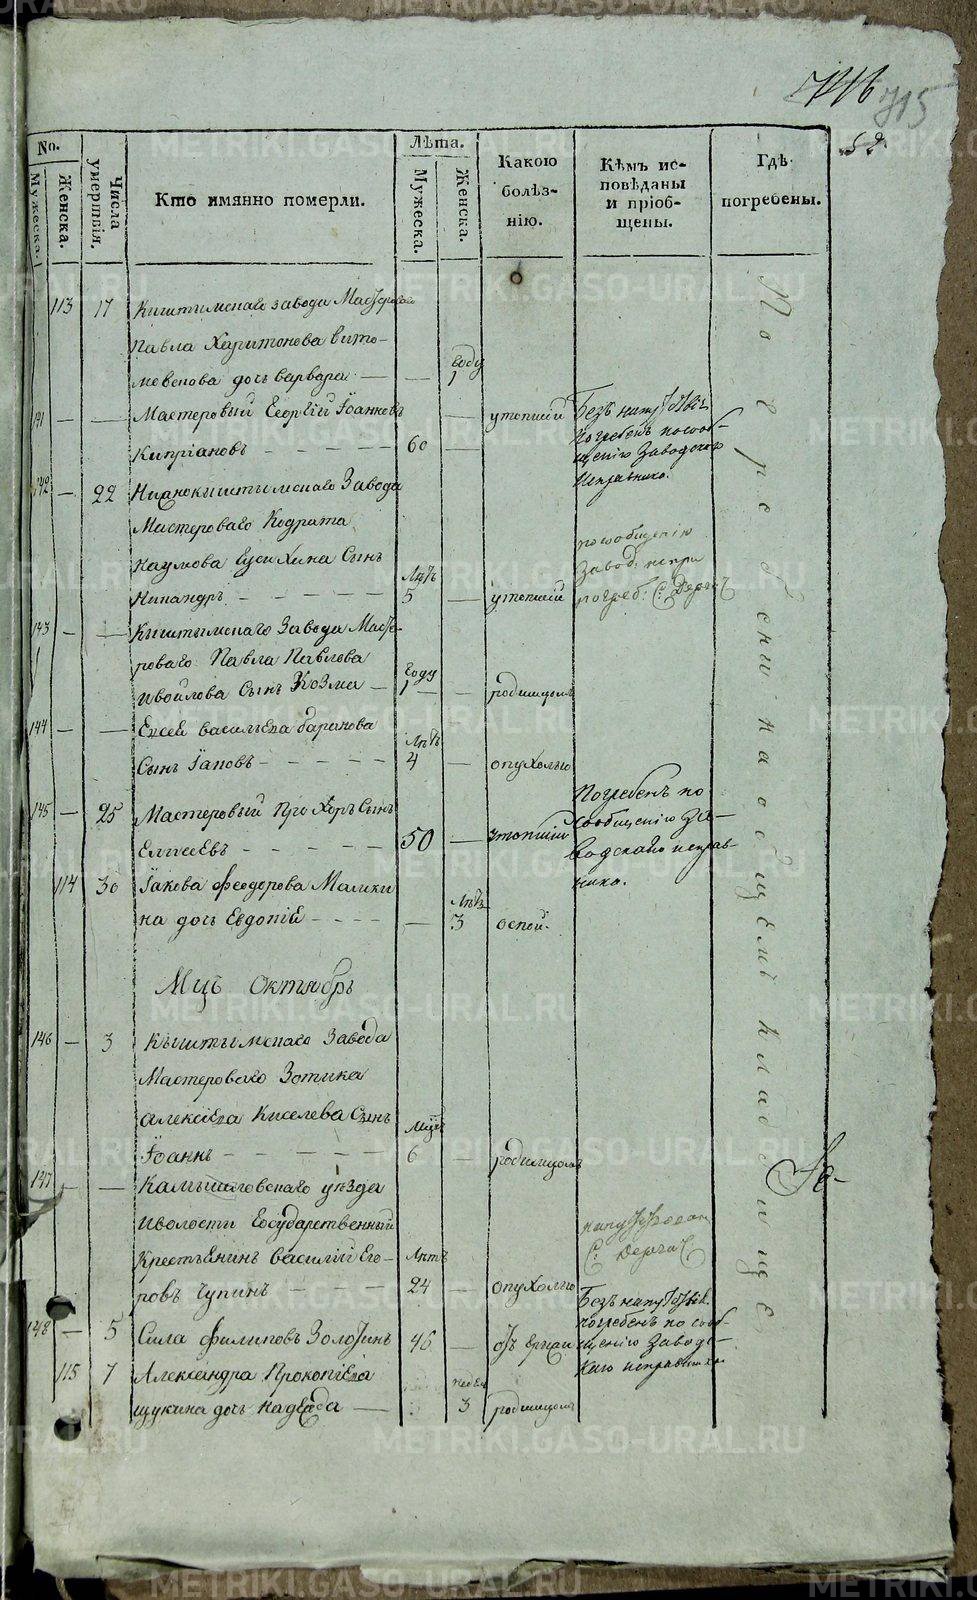 715
52.
No.
Мужеска.
Женска.
Числа умертвія.
Кто имянно померли.
Лѣта.
Мужеска.
Женска.
Какою болѣз-
нію.
Кѣмъ ис-
повѣданы
и пріоб-
щены.
Гдѣ
погребены.
113 17 Киштымскаго завода Мастероваго
Павла Харитонова
дочь варвара — — году 1
141 — — Мастеровый Георгій Іоанновъ — утопшій Безъ напутствія
Кипріановъ - - - - 60 — погребенъ посооб-
щенію Заводскаго
Исправника.
142 — 22 Нижнокиштымскаго Завода
Мастероваго Кодрата
Наумова сынъ
Никандръ - - - - лѣтъ 5 — утопшій
посообщенію
Завод: испра
погреб: С: Дерга
143 — — Киштымскаго Завода Масте-
роваго Павла Павлова
Ивойлова сынъ Козма — году 1 — — родимцомъ
144 — — Елсей васильева баранова
сынъ Іаковъ - - - - лѣтъ 4 — опухолью
145 — 25 Мастеровый Прохоръ сынъ
Елисеевъ - - - - 50 — утопшій
Погребенъ по
сообщенію За-
водскаго исправ-
ника.
114 30 Іакова Феодорова Малки
на дочь Евдокіе - - - - — лѣтъ 3 оспой.
Мцъ Октябрь
146 — 3 Кыштымскаго Завода
Мастероваго Зотика
Алексѣева Киселева сынъ
Іоаннъ - - - - мцъ 6 — родимцомъ
147 — — Камышловскаго уѣзда
волости Государственный
Крестьенинъ василій Его-
ровъ Чупинъ - - - лѣтъ 24 — опухолью
напутствован
С: Дерга
148 — 5 Сила Филиповъ Золотинъ 46 — отъ
Безъ напутствія
погребенъ по сооб-
щенію Заводс-
каго исправника
115 7 Александра Прокопіева
щукина дочь надежда — недел 3 родимцомъ
По веребскимъ на общемъ кладбище